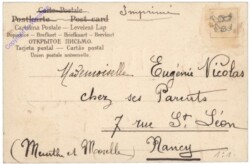 Carte Postale
Postkarte — Post card
Cartolina Postale — Levelező Lap
Dopisnice — Briefkaart — Brefkort — Brevkort
ОТКРЫТОЕ ПИСЬМО
Tarjeta postal — Cartão postal
Union postale universelle
Imprimé
Mademoiselle Eugénie Nicolas
chez ses Parents
7 rue St Léon
Nancy
(Meurthe et Moselle)